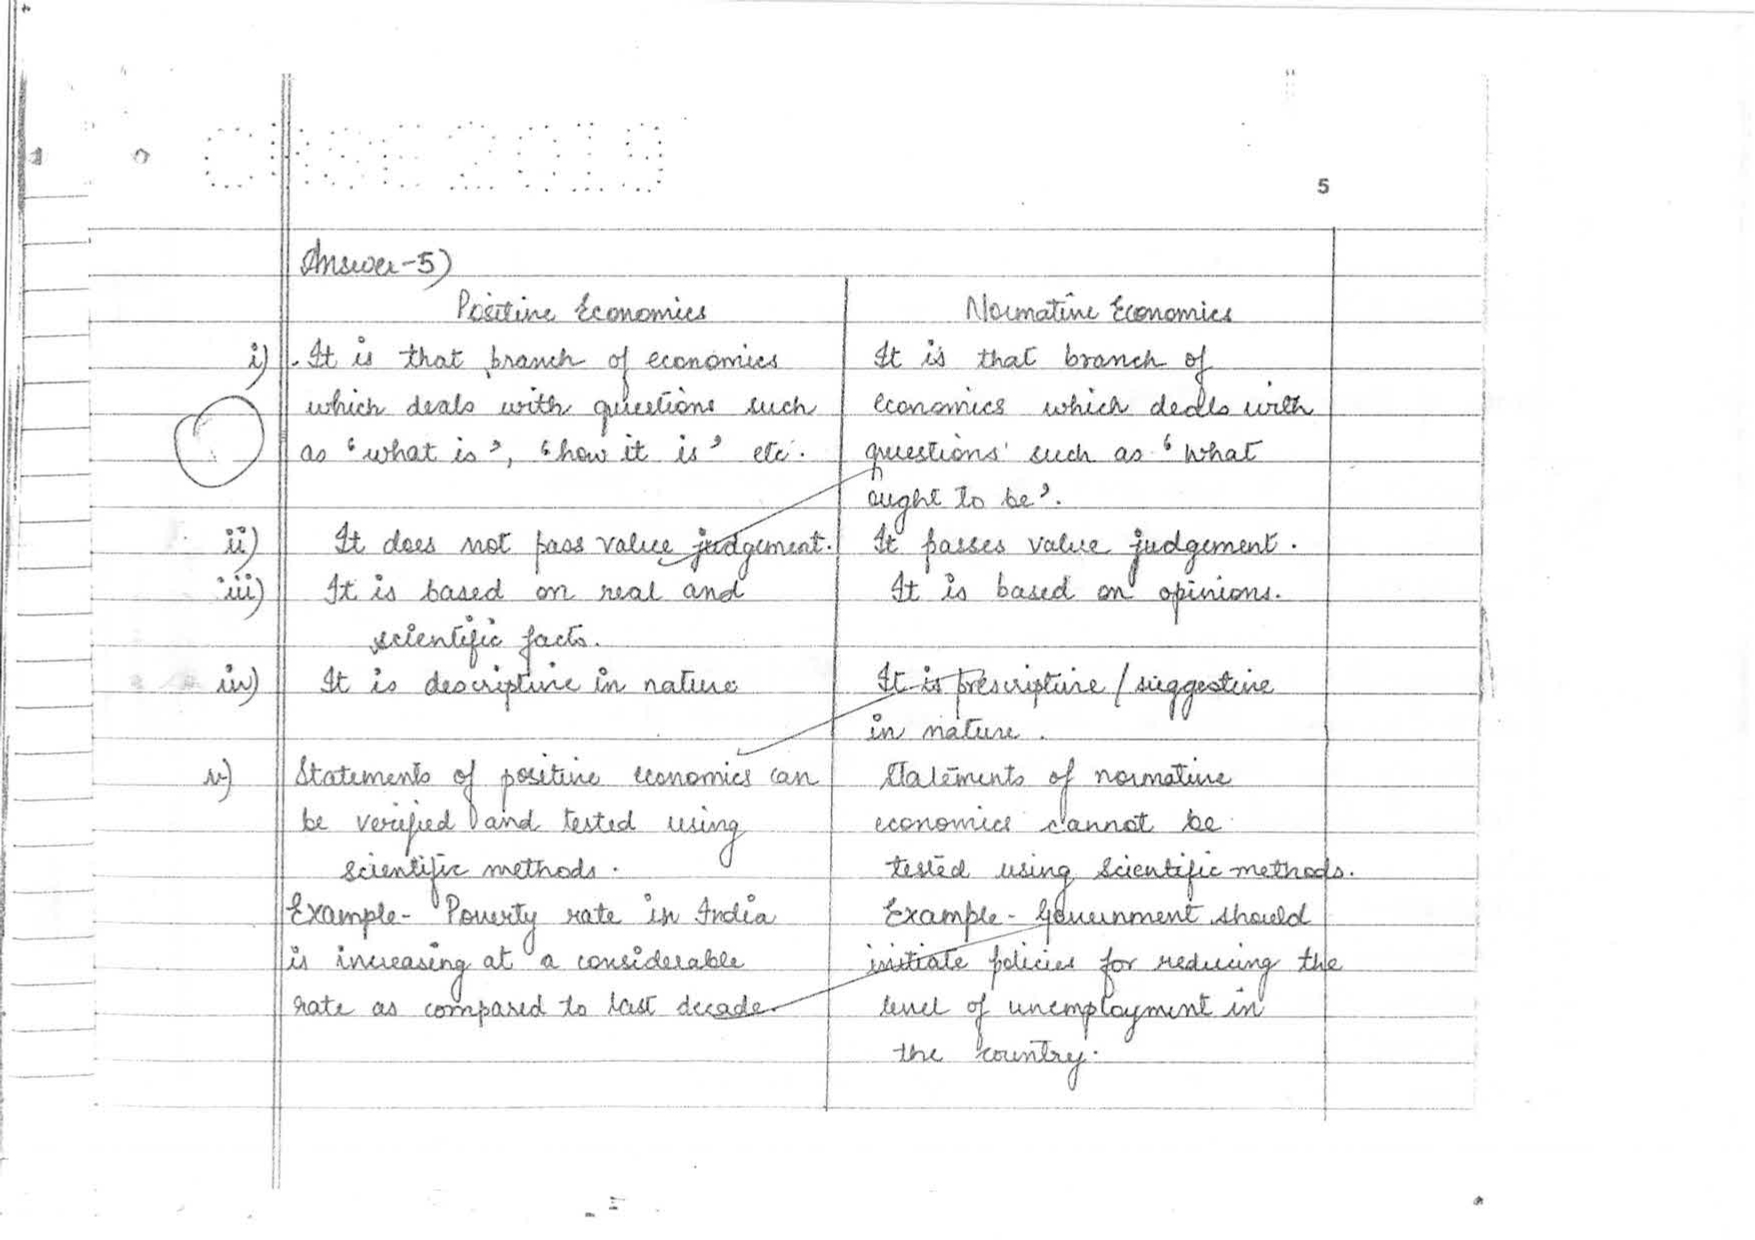 CBSE 2019
5
Answer-5)
Positive Economics
Normative Economics
i) It is that branch of economics
which deals with questions such
as 'what is', 'how it is' etc.
It is that branch of
economics which deals with
questions such as 'what
ought to be'.
ii) It does not pass value judgement.
It passes value judgement.
iii) It is based on real and
scientific facts.
It is based on opinions.
iv) It is descriptive in nature
It is prescriptive / suggestive
in nature.
v) Statements of positive economics can
be verified and tested using
scientific methods.
Statements of normative
economics cannot be
tested using scientific methods.
Example- Poverty rate in India
is increasing at a considerable
rate as compared to last decade.
Example- Government should
initiate policies for reducing the
level of unemployment in
the country.